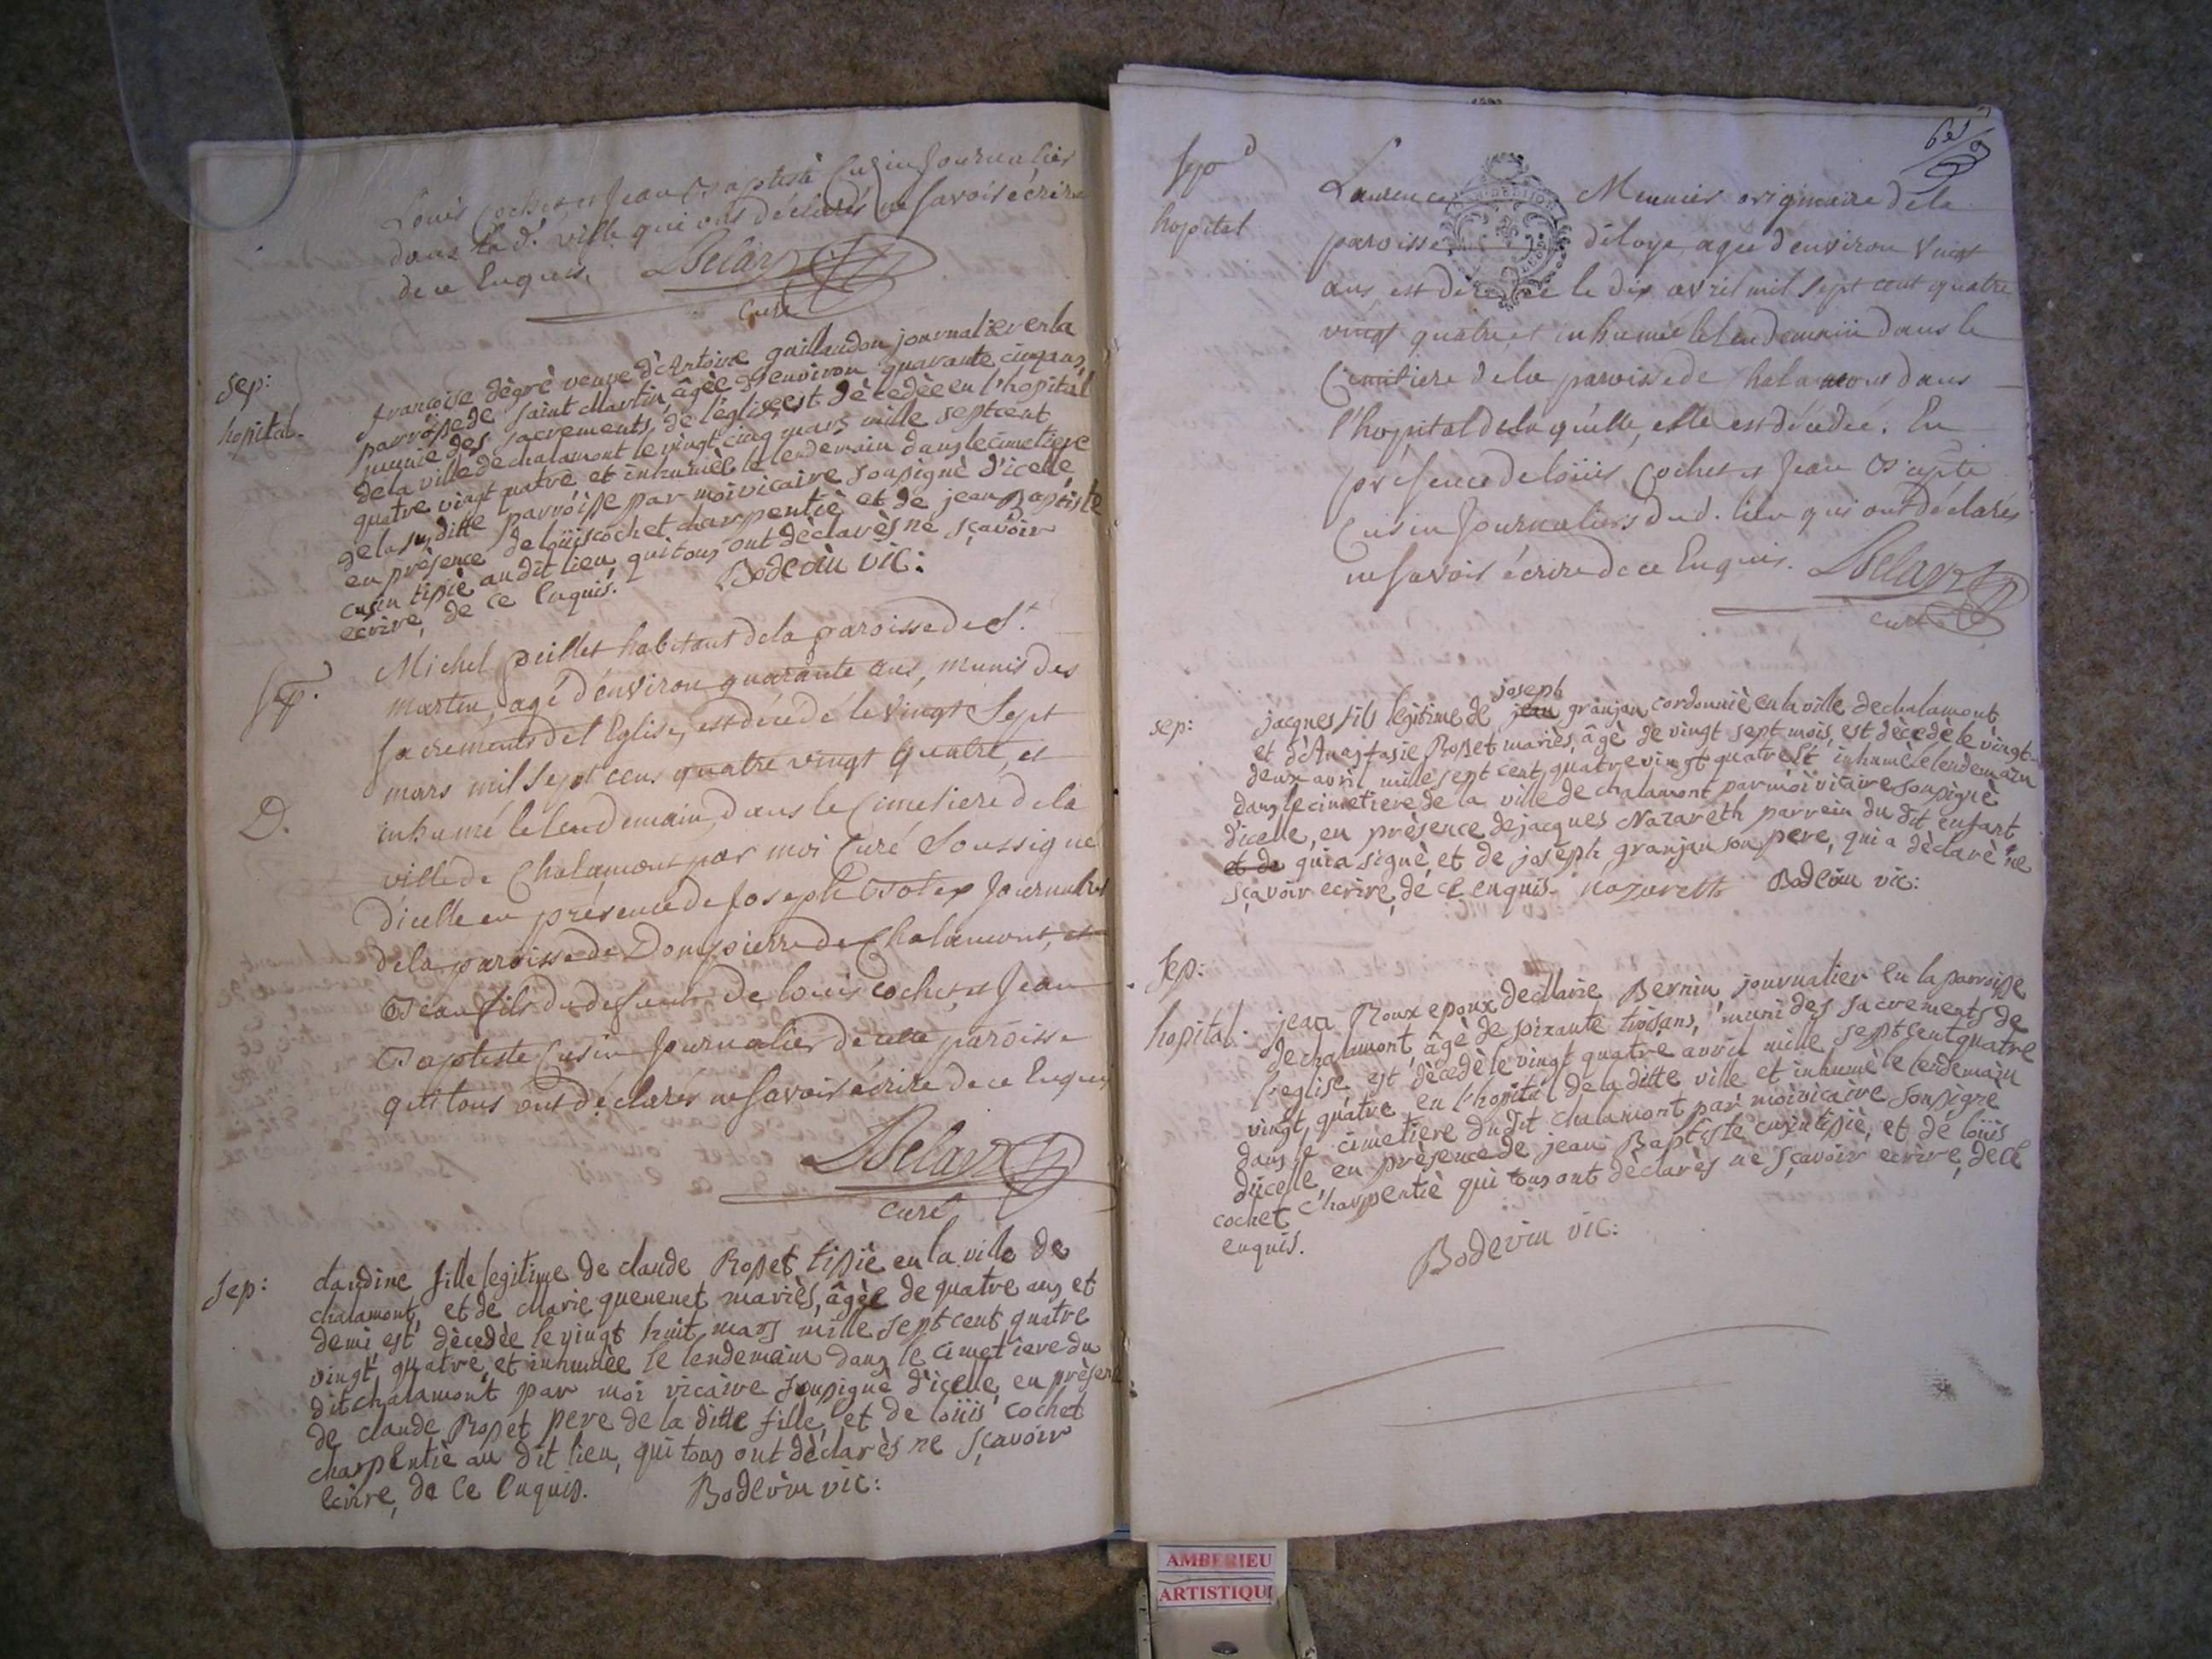 Louis Cochet et Jean Baptiste Cusin Journalier
dans lad.e ville qui ont déclarés ne savoir écrire
de ce Enquis.
curé
sep:
hopital.
francoise dègrè veuve d'Antoine guillaudon journalier en la
parroisse de saint Martin, âgèe d'environ quarante cinq ans,
munie des sacrements de l'église, est dècedèe en l'hopital
de la ville de chalamont le vingt cinq mars mille sept cent
quatre vingt quatre et inhumèe le lendemain dans le cimetiere
de la susditte parroisse par moi vicaire soussignè d'icelle,
en prèsence de loüis cochet charpentiè et de jean Baptiste
cusin tissiè au dit lieu, qui tous ont dèclarès ne sçavoir
ecrire, de ce enquis. Bodevin vic:
Sep.
D.
Michel peillet habitant de la paroisse de St.
martin, agé d'environ quarante ans, munis des
sacrements de l'Eglise, est décédé le vingt sept
mars mil sept cens quatre vingt quatre, et
inhumé le lendemain dans le Cimetiere de la
ville de Chalamont par moi Curé Soussigné
d'icelle en présence de Joseph Journalier
de la paroisse de Dompierre de Chalamont, et
Jean fils du defunt de louis cochet et Jean
Baptiste Cusin Journalier de cette paroisse
qui tous ont déclarés ne savoir écrire de ce Enquis
curé
sep:
claudine fille legitime de claude Rosset tissiè en la ville de
chalamont, et de Marie quenenet mariès, âgèe de quatre ans et
demi est dècedèe le vingt huit mars mille sept cent quatre
vingt quatre, et inhumèe le lendemain dans le cimetiere du
dit chalamont par moi vicaire soussignè d'icelle, en prèsence
de claude Rosset pere de la ditte fille, et de loüis cochet
charpentiè au dit lieu, qui tous ont dèclarès ne sçavoir
ecrire, de ce enquis. Bodevin vic:
hopital
Laurence Meunier originaire de la
paroisse deloye, agee d'environ vingt
ans, est decedée le dix avril mil sept cent quatre
vingt quatre, et inhumée le lendemain dans le
Cimitiere de la paroisse de Chalamont dans
l'hopital de laquelle, elle est décedée. En
présence de loüis Cochet et Jean Bapte
Cusin Journaliers dud. lieu qui ont déclarés
ne savoir écrire de ce Enquis.
curé
sep:
jacques fils legitime de jean joseph granjan cordonniè en la ville de chalamont
et d'Anastasie Rosset mariès, âgè de vingt sept mois, est dècedè le vingt-
deux avril mille sept cent quatre vingt quatre et inhumè le lendemain
dans le cimetiere de la ville de chalamont par moi vicaire soussignè
d'icelle, en prèsence de jacques Nazareth parrein du dit enfant
et de qui a signè, et de joseph granjan son pere, qui a dèclarè ne
sçavoir ecrire, de ce enquis. nazareth Bodevin vic:
sep:
hopital.
jean Roux epoux de Marie Bernin, journalier en la parroisse
de chalamont, âgè de soixante trois ans, muni des sacrements de
l'eglise est dècedè le vingt quatre avril mille sept cent quatre
vingt quatre en l'hopital de la ditte ville et inhumè le lendemain
dans le cimetiere du dit chalamont par moi vicaire soussignè
d'icelle, en prèsence de jean Baptiste cusin tissiè, et de loüis
cochet charpentiè qui tous ont dèclarès ne sçavoir ecrire, de ce
enquis. Bodevin vic:
AMBERIEU
ARTISTIQU